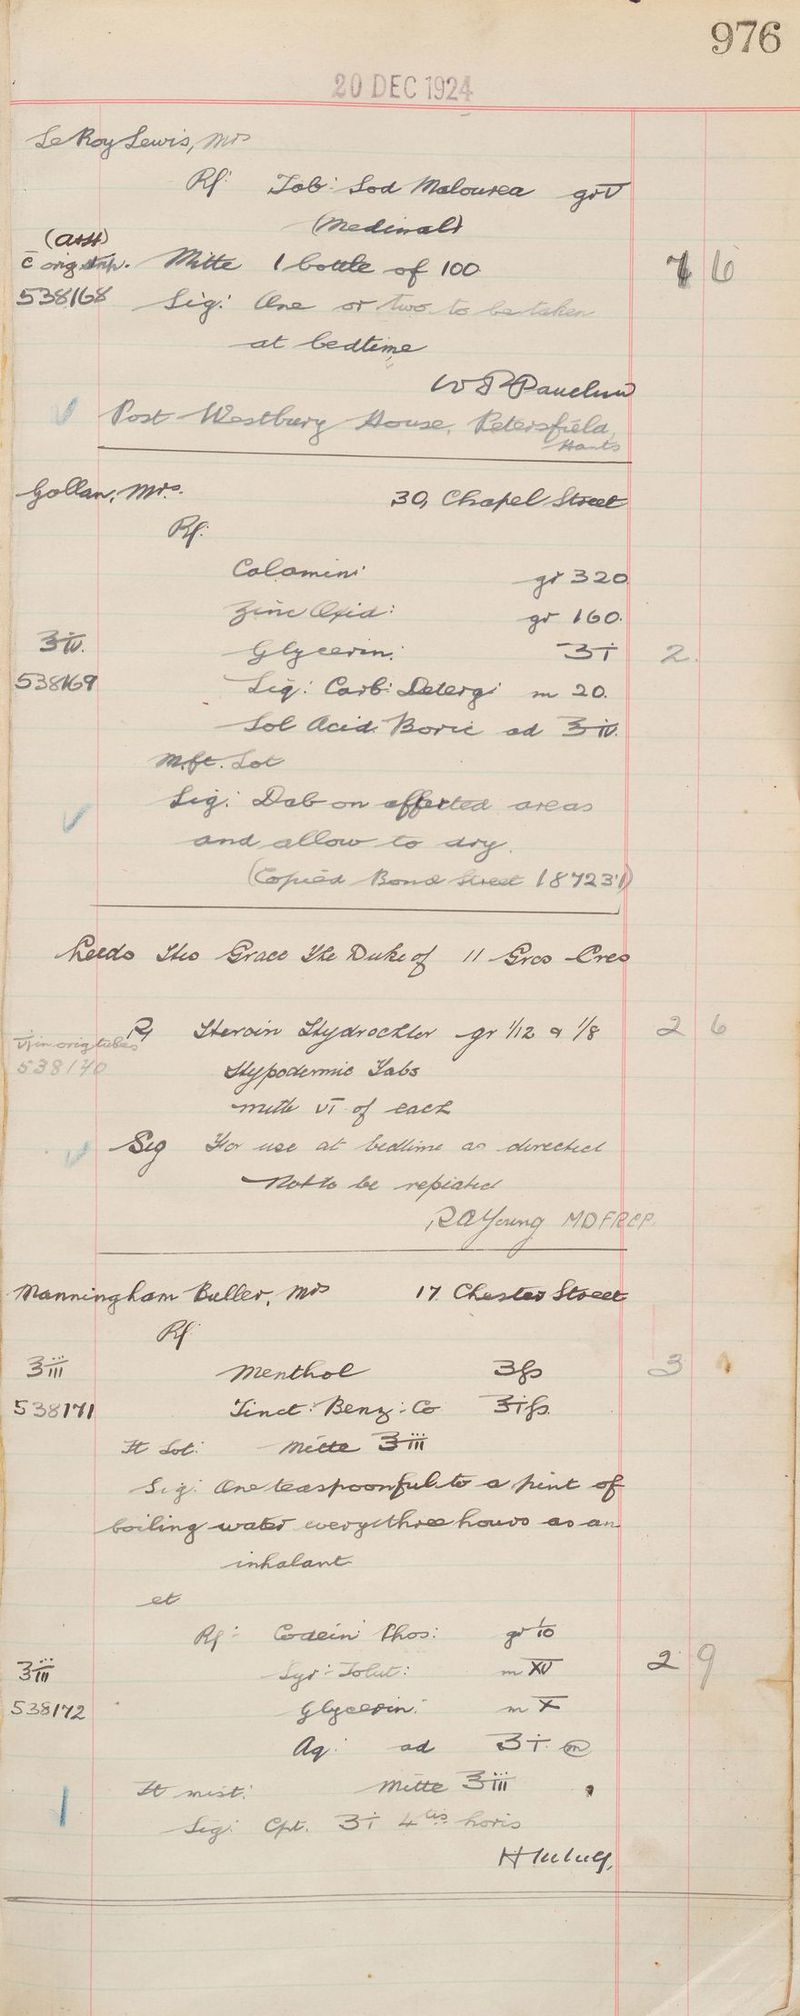 976
20 DEC 1924
Le Roy Lewis, Mrs
Rf: Tab: Sod Malourea gr V
(Medinal)
(A&H)
c̄ orig. Mitte 1 bottle of 100 7 6
538168 Sig: One or two to be taken
at bedtime
Post Westbury House, Petersfield,
Hants
Gollan, Mrs. 30, Chapel Street
Rf:
Calamin: gr 320
Zinc Oxid: gr 160.
℥iv. Glycerin: ʒi 2.
538169 Liq: Carb: Detergi m 20.
Sol Acid: Boric ad ℥iv.
M.ft. Lot
Sig: Dab on affected areas
and allow to dry.
(Copied Bond Street 187231)
Leeds His Grace The Duke of 11 Gros Cres
Rf Heroin Hydrochlor gr 1/12 & 1/8 2 6
vi in orig tubes
538170 Hypodermic Tabs
mitte VI of each
Sig For use at bedtime as directed
Not to be repeated
R A Young MD FRCP.
Manningham Buller, Mrs 17 Chester Street
Rf
℥iii Menthol ʒfs 3
538171 Tinct: Benz: Co ℥ifs.
Ft Lot: Mitte ℥iii
Sig: One teaspoonful to a pint of
boiling water every three hours as an
inhalant
et
Rf: Codein: Phos: gr 1/10
℥iii Syr: Tolut: m XV 2 9
538172 Glycerin: m X
Aq: ad ʒi. m
Ft mist: Mitte ℥iii
Sig: Cpt. ʒi 4tis horis